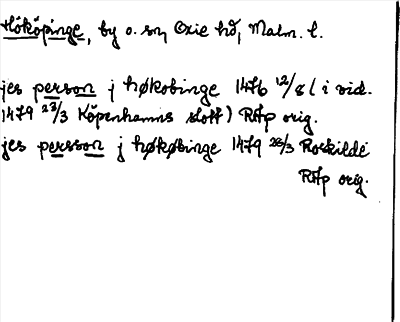 Hököpinge, by o. sn, Oxie hd, Malm. l.
jes person j høkobinge 1476 12/8 (i vid.
1479 23/3 Köpenhamns slott) RAp orig.
jes persson j høkøbinge 1479 28/3 Roskilde
RAp orig.